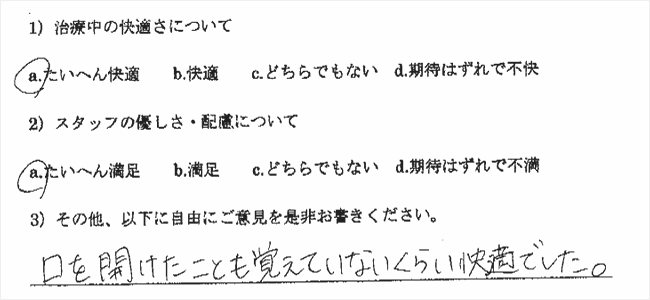 1) 治療中の快適さについて
a.たいへん快適 b.快適 c.どちらでもない d.期待はずれで不快
2) スタッフの優しさ・配慮について
a.たいへん満足 b.満足 c.どちらでもない d.期待はずれで不満
3) その他、以下に自由にご意見を是非お書きください。
口を開けたことも覚えていないくらい快適でした。